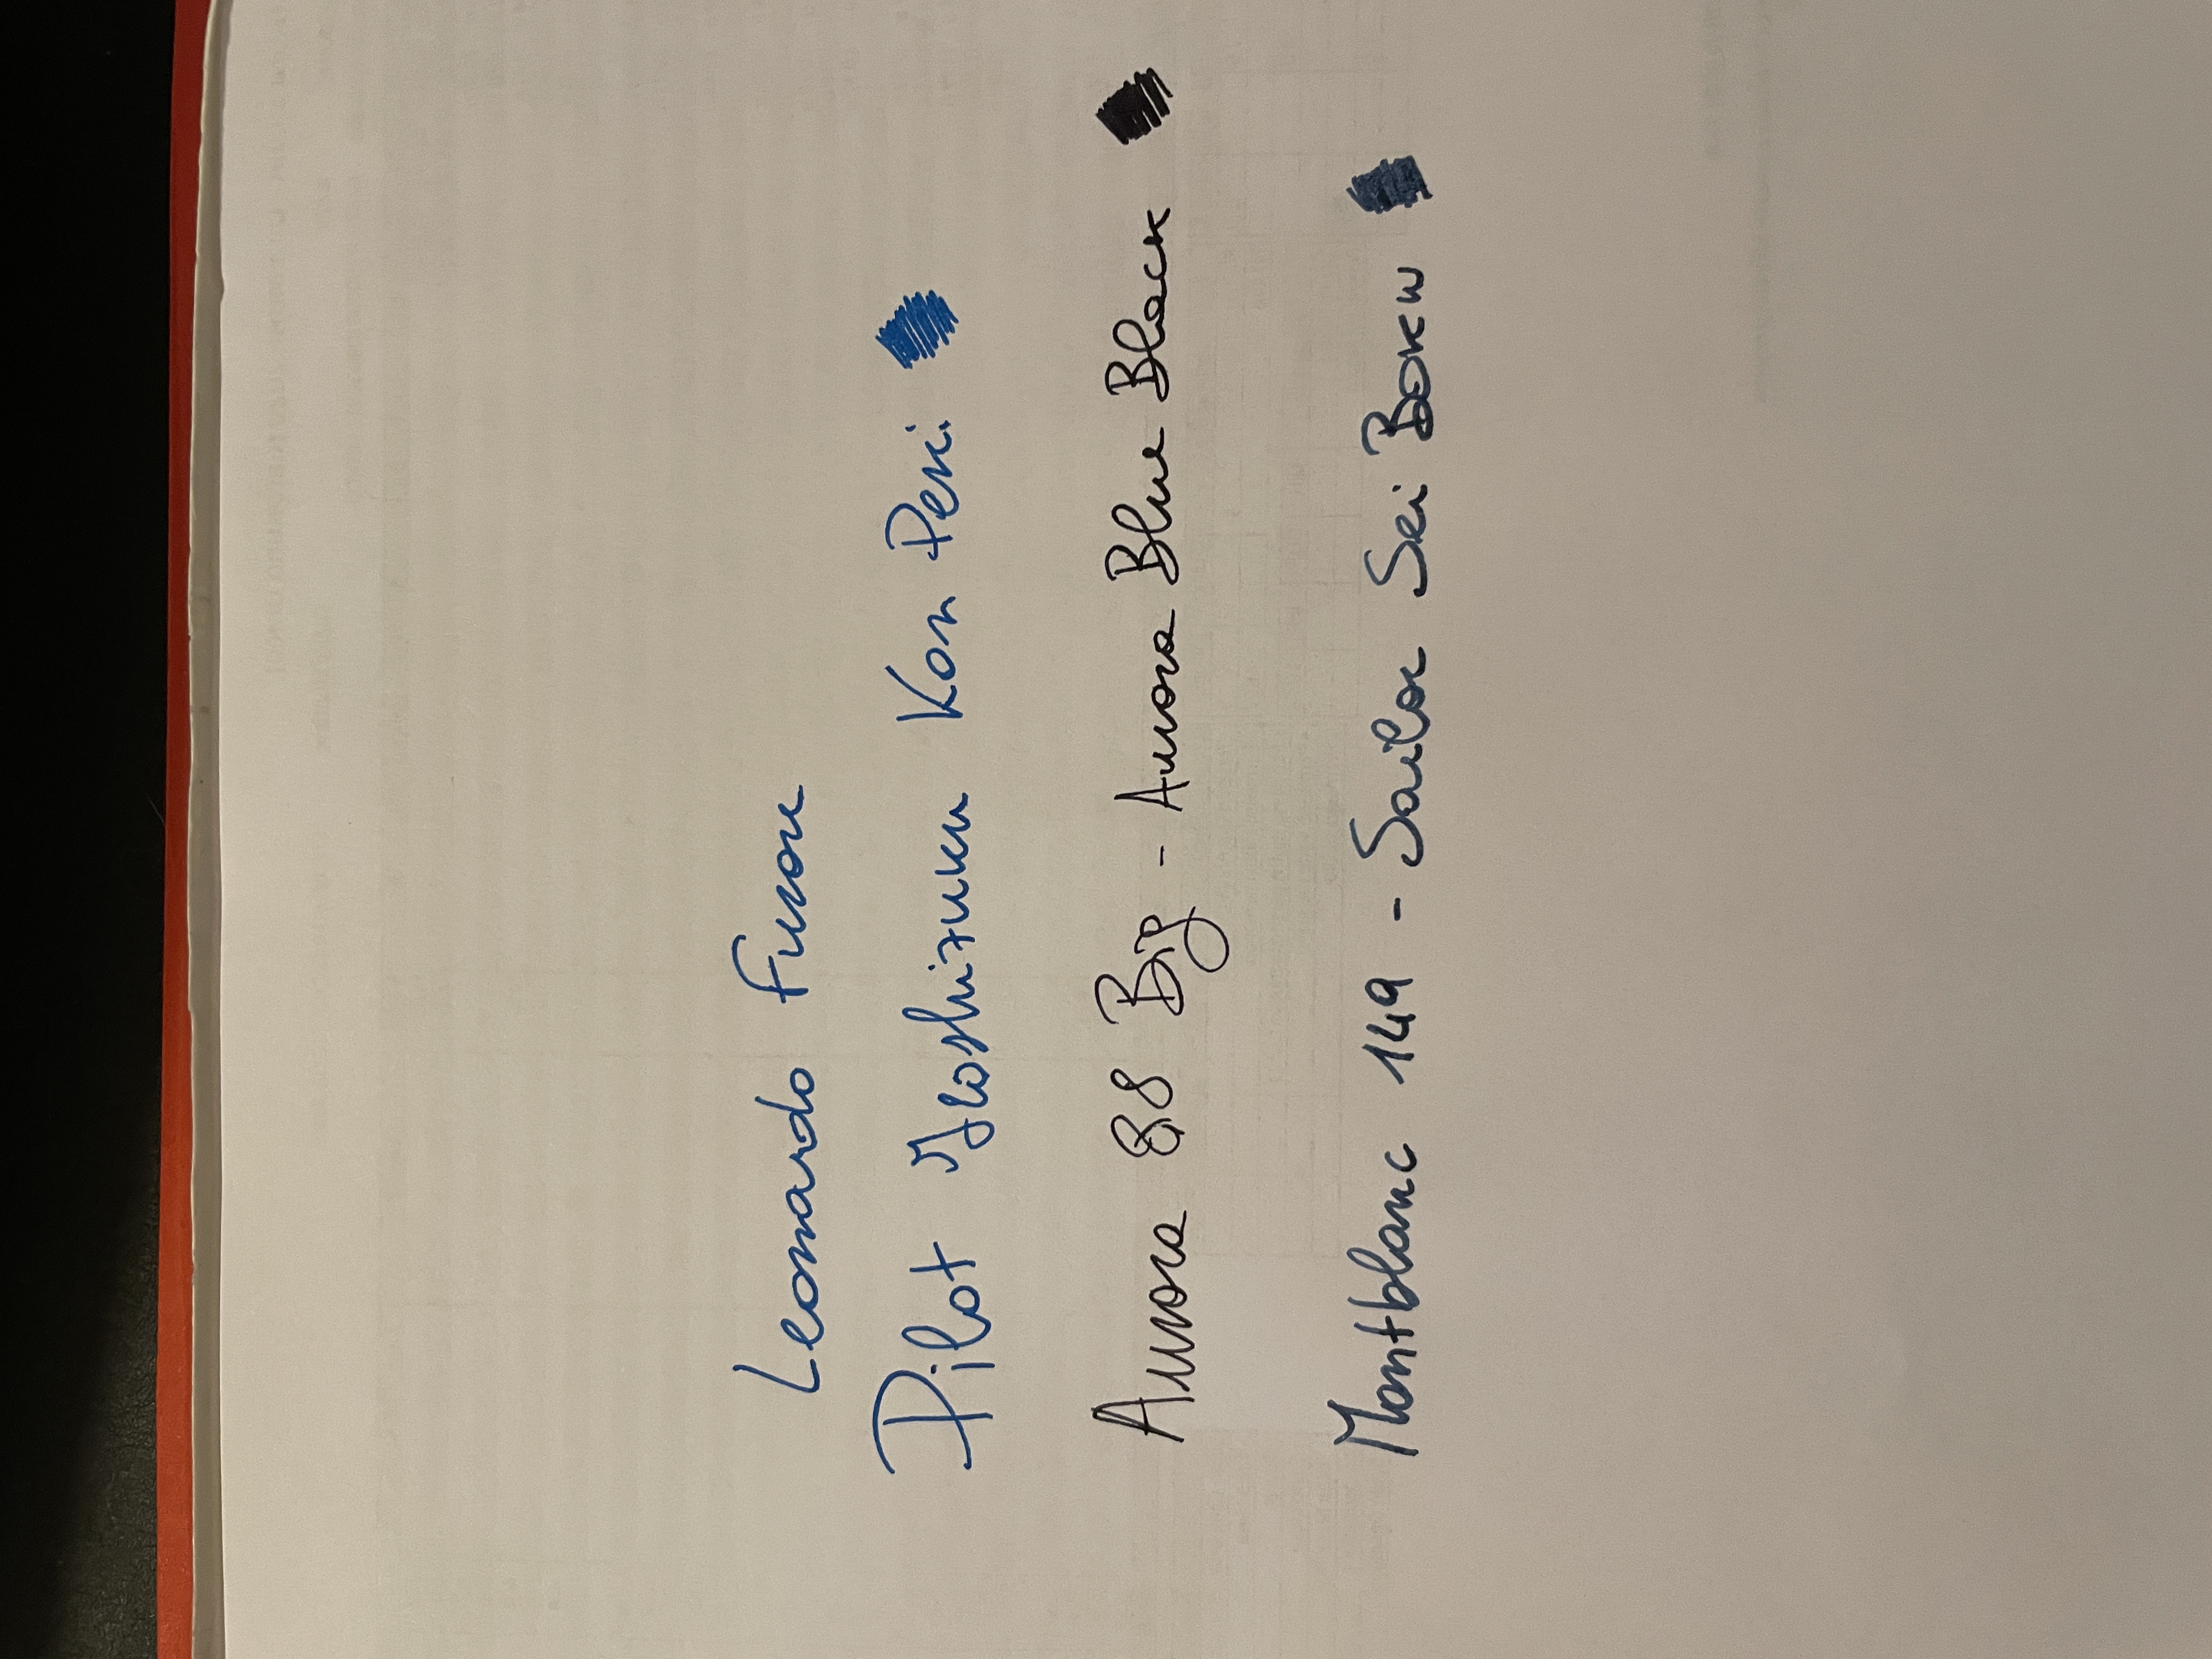 Leonardo Furore
Pilot Iroshizuku Kon Peki
Aurora 88 Big - Aurora Blue Black
Montblanc 149 - Sailor Sei Boku